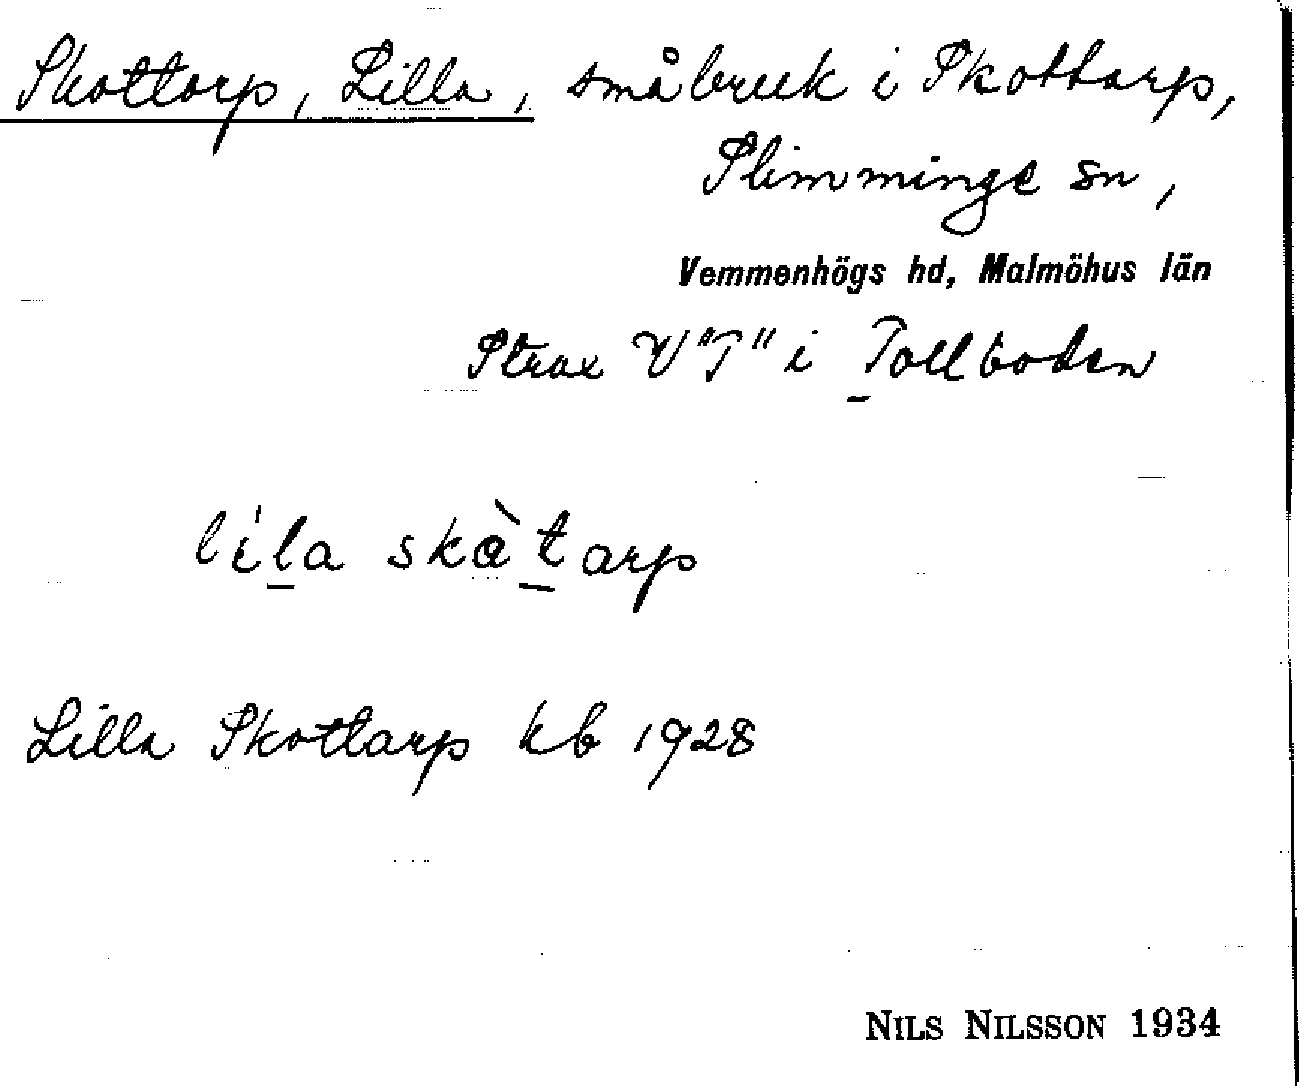 Skottorp, Lilla, småbruk i Skottarp,
Slimminge sn,
Vemmenhögs hd, Malmöhus län
Strax V "T" i Tollboden
lila skàtarp
Lilla Skottarp kb 1928
NILS NILSSON 1934